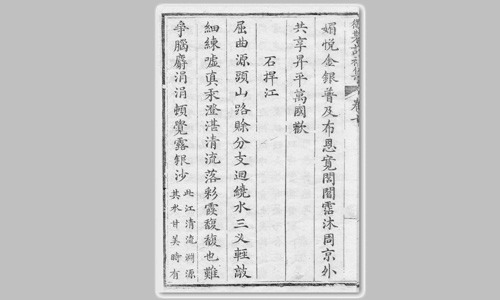 媚悅金銀普及布恩寬閭閻霑沐周京外
共享昇平萬國歡
石捍江
屈曲源頭山路賒分支迴繞水三叉輕敲
細練噓真汞澄湛清流落彩霞馥馥也難
爭腦麝涓涓頓覺露銀沙
此江清流淵源
其水甘美時有